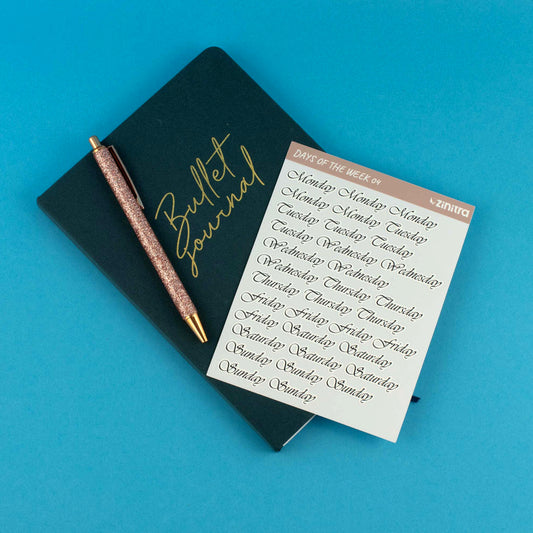 Bullet
Journal
DAYS OF THE WEEK 04
zinitra
Monday Monday Monday
Monday Monday Tuesday
Tuesday Tuesday Tuesday
Tuesday Tuesday Wednesday
Wednesday Wednesday Wednesday
Wednesday Wednesday Thursday
Thursday Thursday Thursday
Friday Friday Friday Friday
Friday Saturday Saturday
Saturday Saturday Saturday
Sunday Sunday Sunday
Sunday Sunday